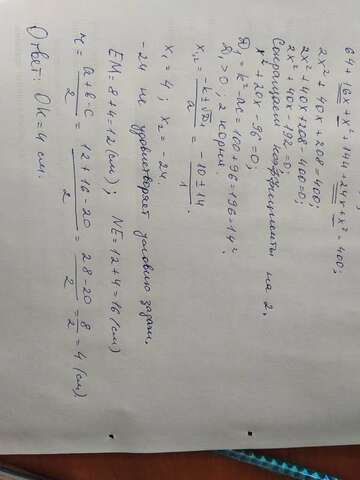 64+16x+x²+144+24x+x²=400;
2x²+40x+208=400;
2x²+40x+208-400=0;
2x²+40x-192=0;
Сокращаем коэффициенты на 2.
x²+20x-96=0;
Д₁=k²-ac=100+96=196=14²
Д₁>0; 2 корня.
x₁,₂=(-k±√Д₁)/a=(-10±14)/1
x₁=4; x₂=-24.
-24 не удовлетворяет условию задачи.
EM=8+4=12(см); NE=12+4=16(см)
r=(a+b-c)/2=(12+16-20)/2=(28-20)/2=8/2=4(см)
Ответ: OK=4 см.